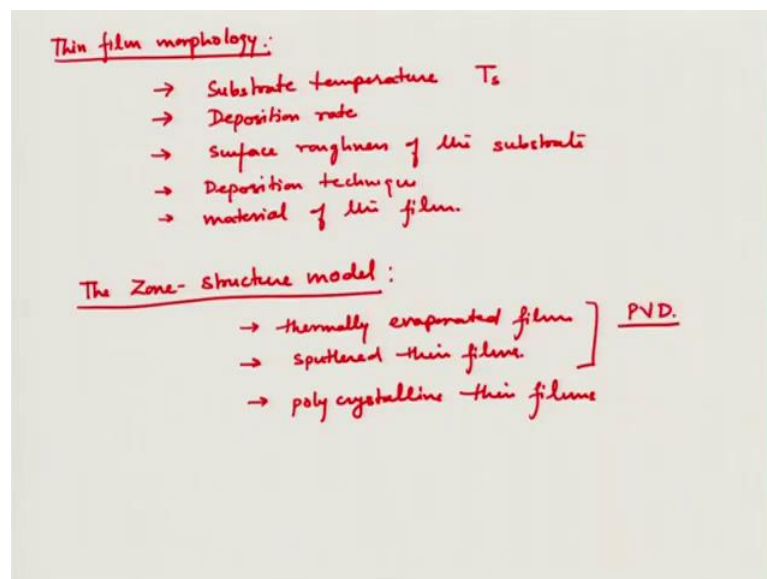 Thin film morphology:
→ Substrate temperature Ts
→ Deposition rate
→ Surface roughness of the substrate
→ Deposition technique
→ material of the film.
The Zone-structure model:
→ thermally evaporated films
→ sputtered thin films.
PVD.
→ poly crystalline thin films